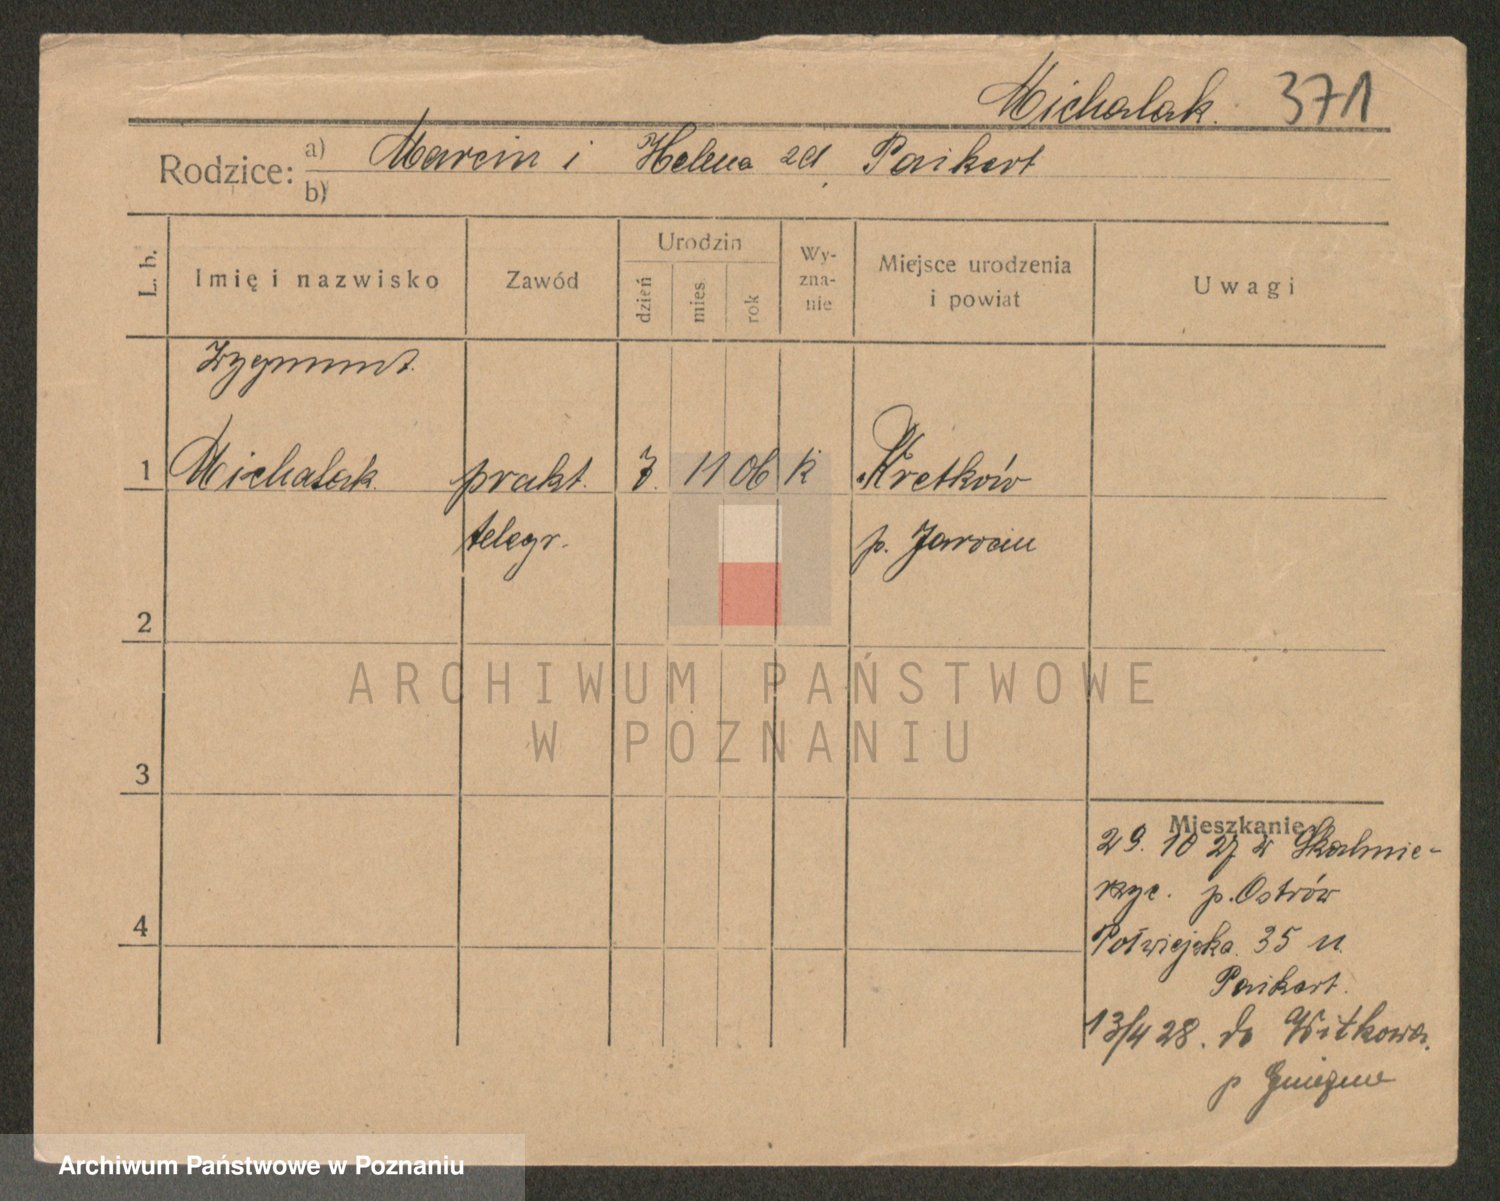 Michalak. 371
Rodzice: a) Marcin i Helena zd. Paikert
b)
L. b. Imię i nazwisko Zawód Urodzin dzień mies. rok Wy-zna-nie Miejsce urodzenia i powiat Uwagi
Zygmunt
1 Michalak prakt. 7. 11 06 k Kretków
telegr. p. Jarocin
2
ARCHIWUM PAŃSTWOWE
W POZNANIU
3
Mieszkanie
29. 10 27 z Skalmie-
rzyc. p. Ostrów
4
Półwiejska 35 u
Paikert.
13/4 28. do Witkowa.
p Gniezno
Archiwum Państwowe w Poznaniu